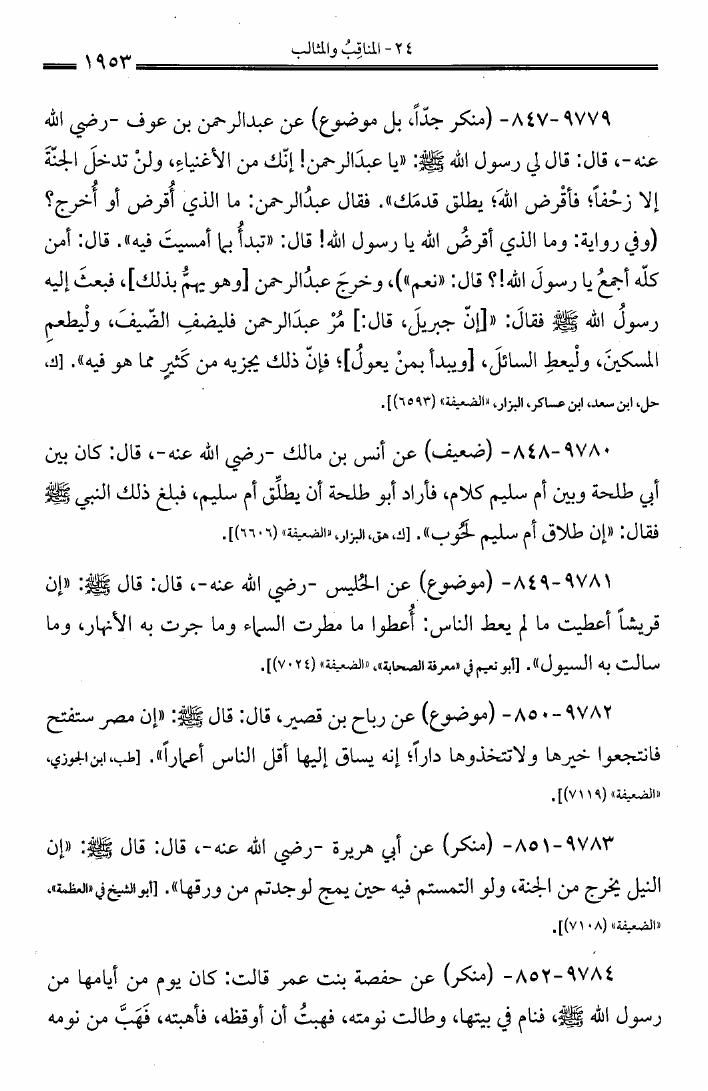 ٢٤- المناقبُ والمثالب
١٩٥٣
٩٧٧٩-٨٤٧- (منكر جدّاً، بل موضوع) عن عبدالرحمن بن عوف -رضي الله
عنه-، قال: قال لي رسول الله ﷺ: «يا عبدَالرحمن! إنّك من الأغنياءِ، ولنْ تدخلَ الجنّةَ
إلا زحْفاً؛ فأقْرض اللهَ؛ يطلق قدمَك». فقال عبدُالرحمن: ما الذي أُقرض أو أُخرج؟
(وفي رواية: وما الذي أقرضُ الله يا رسول الله! قال: «تبدأُ بما أمسيتَ فيه». قال: أمن
كلّه أجمعُ يا رسولَ الله!؟ قال: «نعم»)، وخرجَ عبدُالرحمن [وهو يهمُّ بذلك]، فبعثَ إليه
رسولُ الله ﷺ فقالَ: «[إنّ جبريلَ، قال:] مُرْ عبدَالرحمن فليضفِ الضّيفَ، ولْيطعمِ
المسكينَ، ولْيعطِ السائلَ، [ويبدأ بمنْ يعولُ]؛ فإنّ ذلك يجزيه من كَثيرٍ مما هو فيه». [ك،
حل، ابن سعد، ابن عساكر، البزار، «الضعيفة» (٦٥٩٣)].
٩٧٨٠-٨٤٨- (ضعيف) عن أنس بن مالك -رضي الله عنه-، قال: كان بين
أبي طلحة وبين أم سليم كلام، فأراد أبو طلحة أن يطلِّق أم سليم، فبلغ ذلك النبي ﷺ
فقال: «إن طلاق أم سليم لَحُوب». [ك، هق، البزار، «الضعيفة» (٦٦٠٦)].
٩٧٨١-٨٤٩- (موضوع) عن الحُليس -رضي الله عنه-، قال: قال ﷺ: «إن
قريشاً أعطيت ما لم يعط الناس: أُعطوا ما مطرت السماء وما جرت به الأنهار، وما
سالت به السيول». [أبو نعيم في «معرفة الصحابة»، «الضعيفة» (٧٠٢٤)].
٩٧٨٢-٨٥٠- (موضوع) عن رباح بن قصير، قال: قال ﷺ: «إن مصر ستفتح
فانتجعوا خيرها ولاتتخذوها داراً؛ إنه يساق إليها أقل الناس أعماراً». [طب، ابن الجوزي،
«الضعيفة» (٧١١٩)].
٩٧٨٣-٨٥١- (منكر) عن أبي هريرة -رضي الله عنه-، قال: قال ﷺ: «إن
النيل يخرج من الجنة، ولو التمستم فيه حين يمج لوجدتم من ورقها». [أبو الشيخ في «العظمة»،
«الضعيفة» (٧١٠٨)].
٩٧٨٤-٨٥٢- (منكر) عن حفصة بنت عمر قالت: كان يوم من أيامها من
رسول الله ﷺ، فنام في بيتها، وطالت نومته، فهبتُ أن أوقظه، فأهبته، فَهَبَّ من نومه